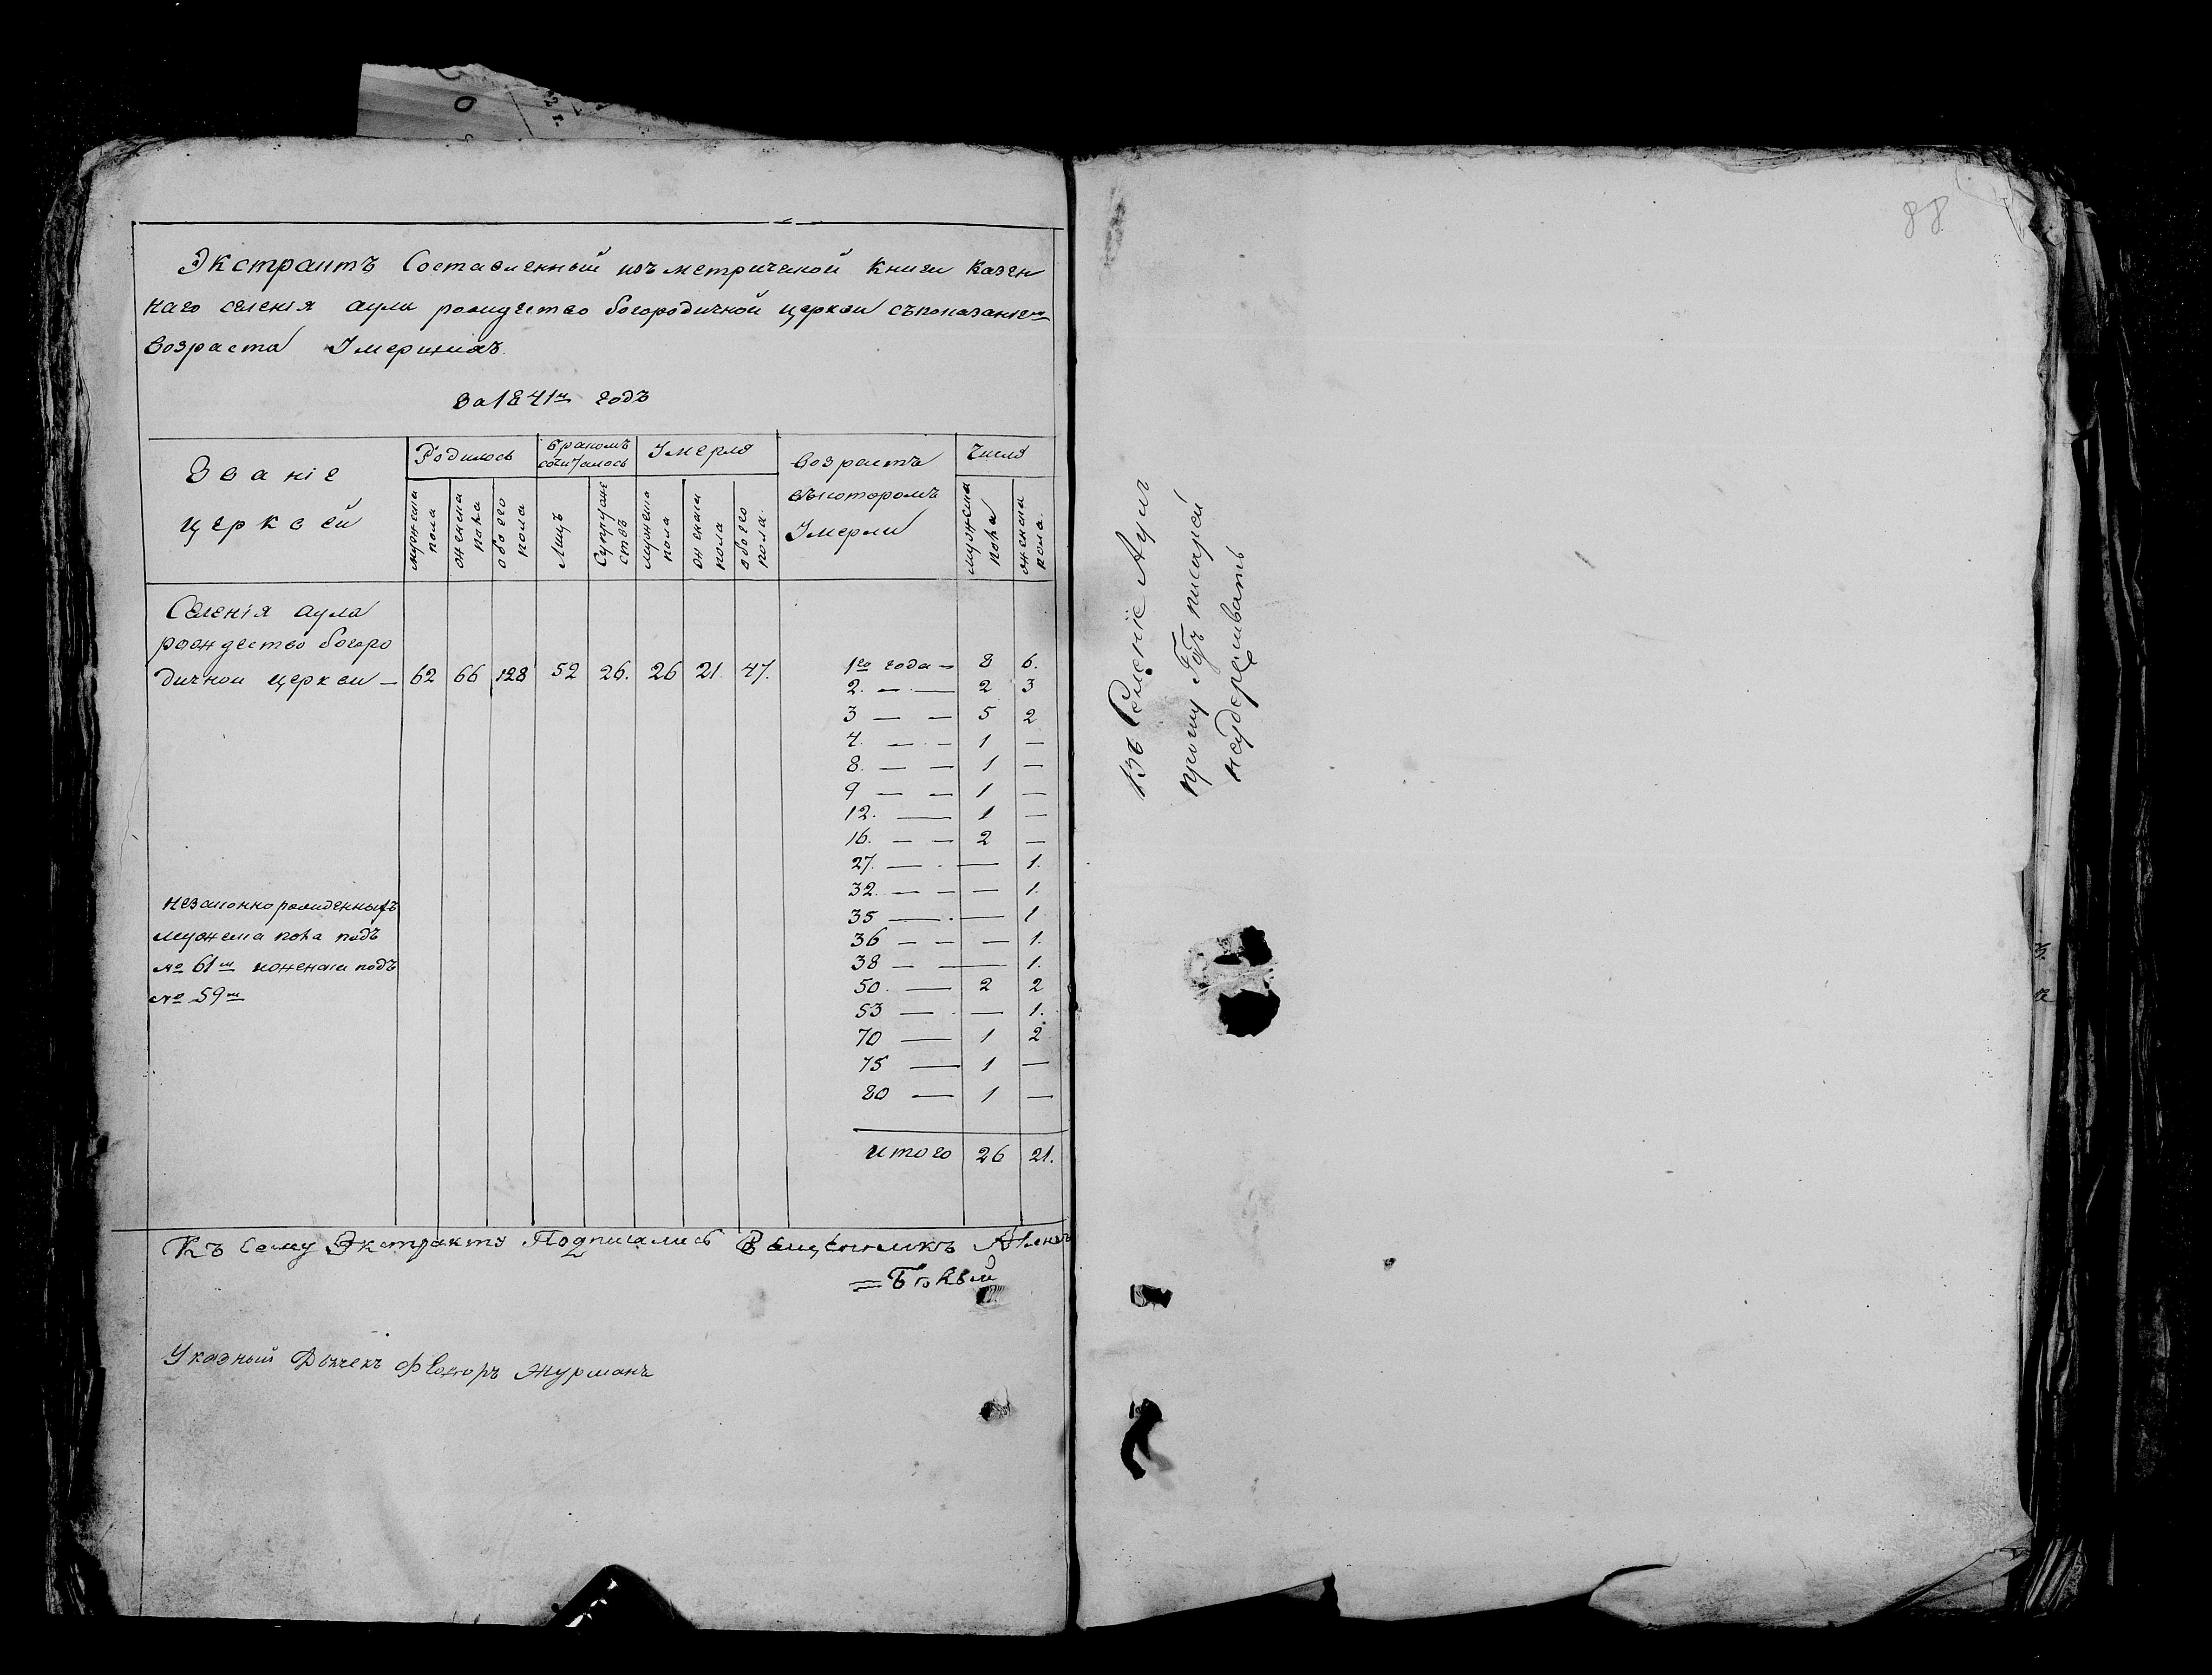 88
Экстрактъ Составленный изъ метрической Книги Казен
наго селенія аула рождество богородичной церкви съ показаніем
возраста Умершихъ.
За 1841й годъ
Званіе
церквей
Родилось
Бракомъ
сочиталось
Умерло
возрастъ
въ котором
Умерли
Число
мужеска
пола
женска
пола
обоего
пола
Лицъ
Супруже
ствъ
мужеска
пола
женска
пола
обоего
пола.
мужеска
пола
женска
пола.
Селенія аула
рождество богоро
дичной церкви — 62 66 128 52 26. 26 21. 47.
1го года — 8 6.
2. — — 2 3
3 — — 5 2
4. — — 1 —
8. — — 1 —
9 — — 1 —
12. — 1 —
16. — — 2 —
27. — — 1.
32. — — — 1.
35 — — 1
36 — — — 1.
38 — — 1.
50. — 2 2
53 — — 1.
70 — 1 2
75 — 1 —
80 — 1 —
итого 26 21.
незаконнорожденныхъ
мужеска пола подъ
№ 61м и женска подъ
№ 59м
Къ сему Экстракту Подписались Священникъ
Указный Дьячекъ Федоръ Журманъ
Въ Селеніе Аулъ
прошу Г.Гдъ писарей
неудерживать